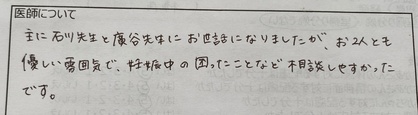 医師について
主に石川先生と廣谷先生にお世話になりましたが、お2人とも
優しい雰囲気で、妊娠中の困ったことなど相談しやすかった
です。